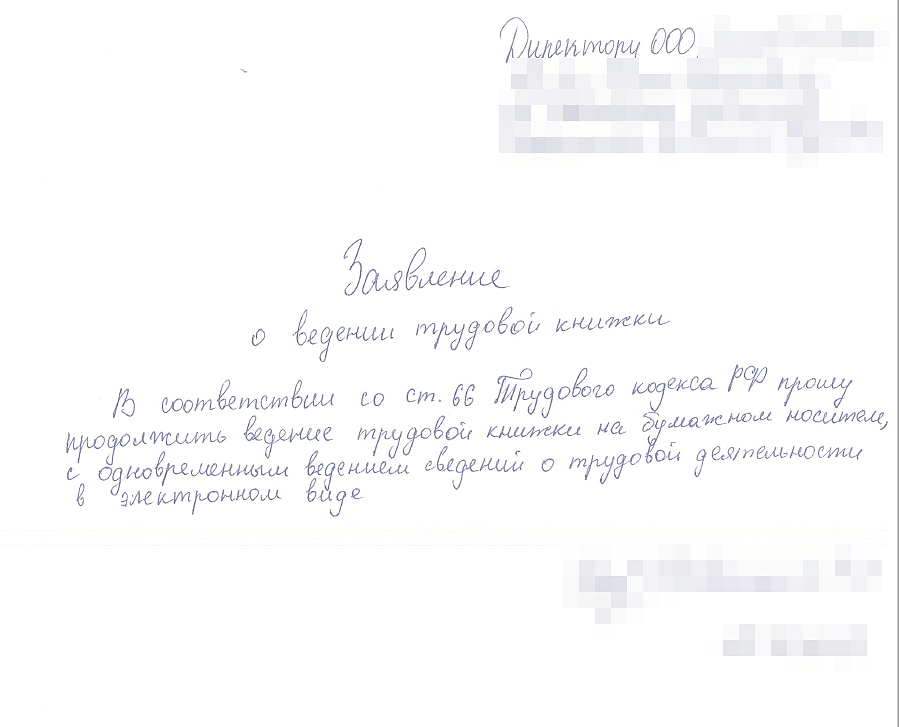 Директору ООО
Заявление
о ведении трудовой книжки
В соответствии со ст. 66 Трудового кодекса РФ прошу
продолжить ведение трудовой книжки на бумажном носителе,
с одновременным ведением сведений о трудовой деятельности
в электронном виде